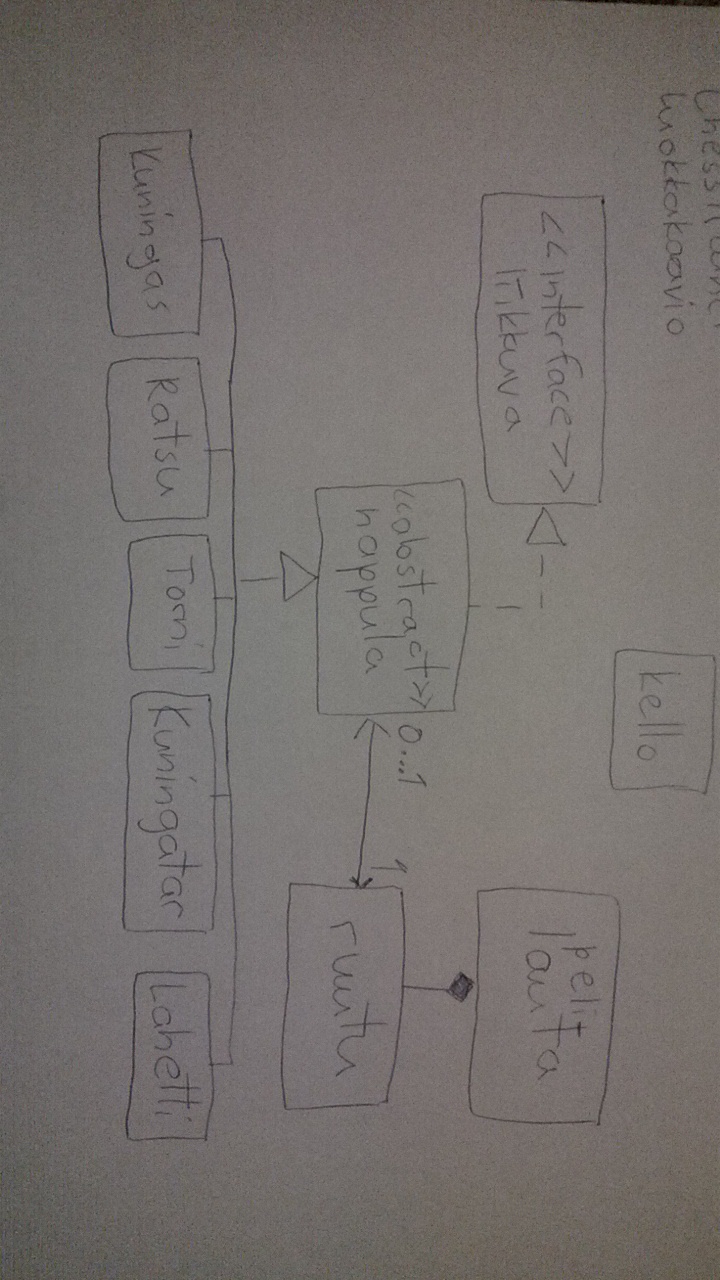 luokkakaavio
kello
<<interface>>
peli-
lauta
<<abstract>>
nappula
0...1
1
ruutu
Kuningas
Ratsu
Torni
Kuningatar
Lahetti